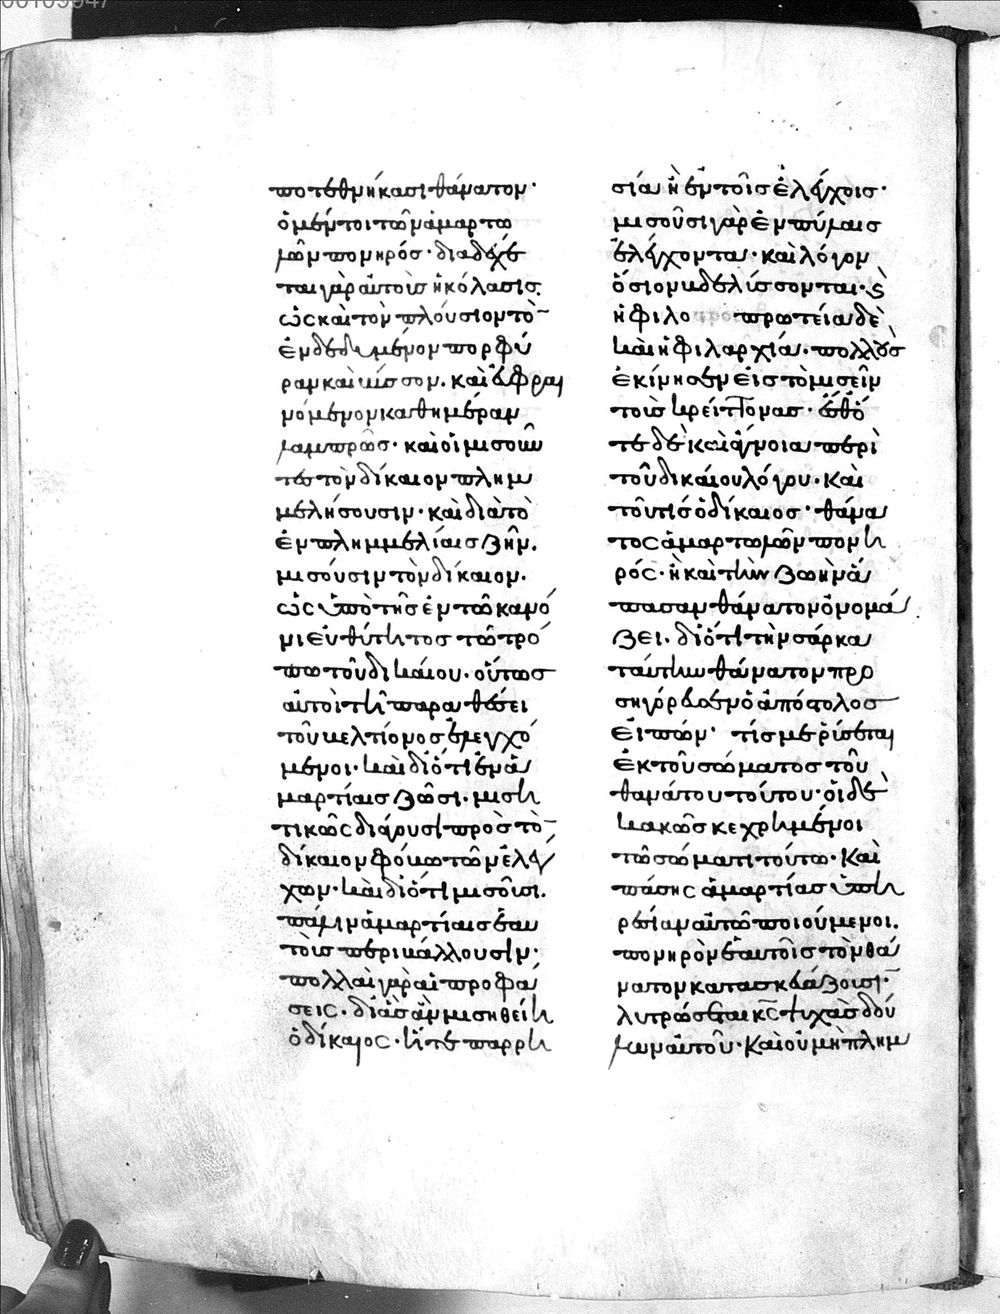 ποτεθνήκασι θάνατον·
ὁ μέντοι τῶν ἁμαρτω
λῶν πονηρός· διαδέχε
ται γὰρ αὐτοὺς ἡ κόλασις.
ὡς καὶ τὸν πλούσιον τὸ
ἐνδεδυμένον πορφύ
ραν καὶ βύσσον. καὶ εὐφραι
νόμενον καθημέραν
λαμπρῶς· καὶ οἱ μισοῦν
τες τὸν δίκαιον πλημ
μελήσουσιν· καὶ διὰ τὸ
ἐν πλημμελίαις ζῆν.
μισοῦσιν τὸν δίκαιον.
ὡς ὑπὸ τῆς ἐν τῶ κανό
νι εὐθύτητος τῶ τρό
πω τοῦ δικαίου. οὕτως
αὐτοὶ τῆ παραθέσει
τοῦ βελτίονος ἐλεγχό
μενοι. καὶ διότι ἐν ἁ
μαρτίαις ζῶσι. μιση
τικῶς διάγουσι πρὸς τὸ
δίκαιον φόβω τῶν ἐλέγ
χων. καὶ διότι μισοῦσι.
πάλιν ἁμαρτίαις ἑαυ
τοὺς περιβάλλουσιν·
πολλαὶ γὰρ αἱ προφά
σεις. δι ἃς ἂν μισηθείη
ὁ δίκαιος. ἥτε παρρη
σία ἡ ἐν τοῖς ἐλέγχοις·
μισοῦσι γὰρ ἐν πύλαις
ἐλέγχοντα. καὶ λόγον
ὅσιον βδελύσσονται. ϛ
ἡ φιλο πρωτεία δὲ
καὶ ἡ φιλαρχία. πολλοὺς
ἐκίνησεν εἰς τὸ μισεῖν
τοὺς κρείττονας. ἔσθό
τε δὲ καὶ ἄγνοια περὶ
τοῦ δικαίου λόγου. καὶ
τοῦ τίς ὁ δίκαιος· θάνα
τος ἁμαρτωλῶν πονη
ρός. ἢ καὶ τὴν ζωὴν ἅ
πασαν θάνατον ὀνομά
ζει. διότι τὴν σάρκα
ταύτην θάνατον προ
σηγόρευσεν ὁ ἀπόστολος
εἰπών· τίς με ῥύσεται
ἐκ τοῦ σώματος τοῦ
θανάτου τούτου. οἱ δὲ
κακῶς κεχρημένοι
τῶ σώματι τούτω. καὶ
πάσης ἁμαρτίας ὑπη
ρεσίαν αὐτῶ ποιούμενοι.
πονηρὸν ἑαυτοῖς τὸν θά
νατον κατασκευάζουσι.
λυτρώσεται κς ψυχὰς δού
λων αὐτοῦ. καὶ οὐ μὴ πλημ